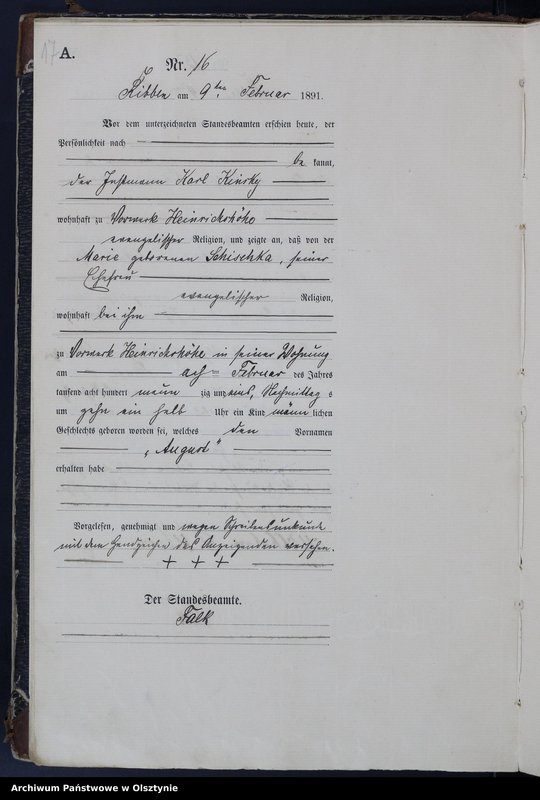 17
A.
Nr. 16
Ribben am 9ten Februar 1891.
Vor dem unterzeichneten Standesbeamten erschien heute, der
Persönlichkeit nach
be kannt,
der Instmann Karl Kinsky
wohnhaft zu Vorwerk Heinrichshöhe
evangelischer Religion, und zeigte an, daß von der
Marie geborenen Schischka, seiner
Ehefrau
evangelischer Religion,
wohnhaft bei ihm
zu Vorwerk Heinrichshöhe in seiner Wohnung
am acht Februar des Jahres
tausend acht hundert neun zig und eins, Nachmittag s
um zehn ein halb Uhr ein Kind männ lichen
Geschlechts geboren worden sei, welches den Vornamen
„August"
erhalten habe
Vorgelesen, genehmigt und wegen Schreibensunkunde
mit dem Handzeichen des Anzeigenden versehen.
+ + +
Der Standesbeamte.
Falk
Archiwum Państwowe w Olsztynie